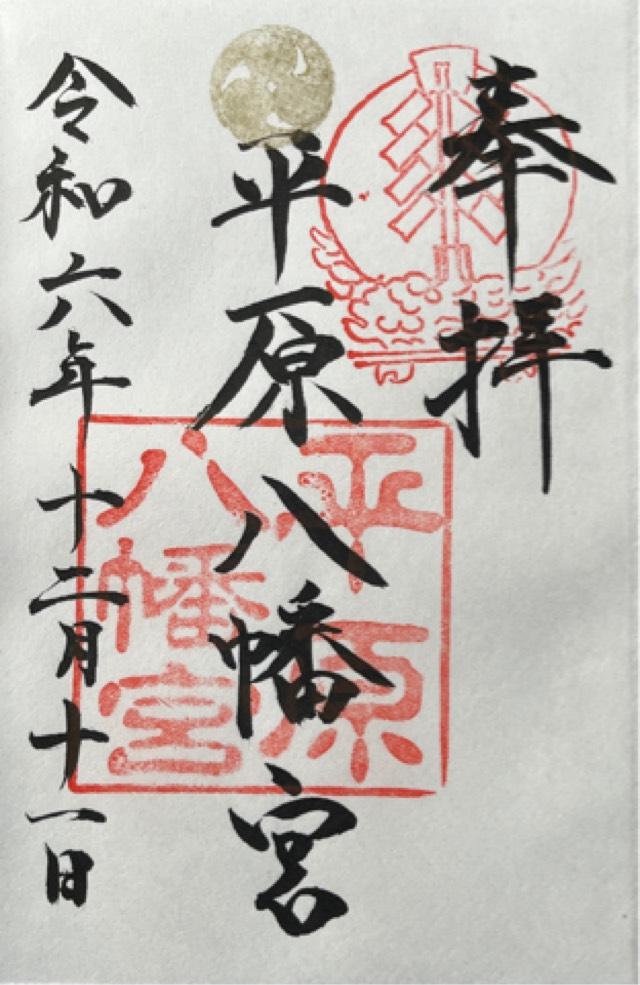 奉拝
平原八幡宮
平原
八幡宮
令和六年十二月十一日